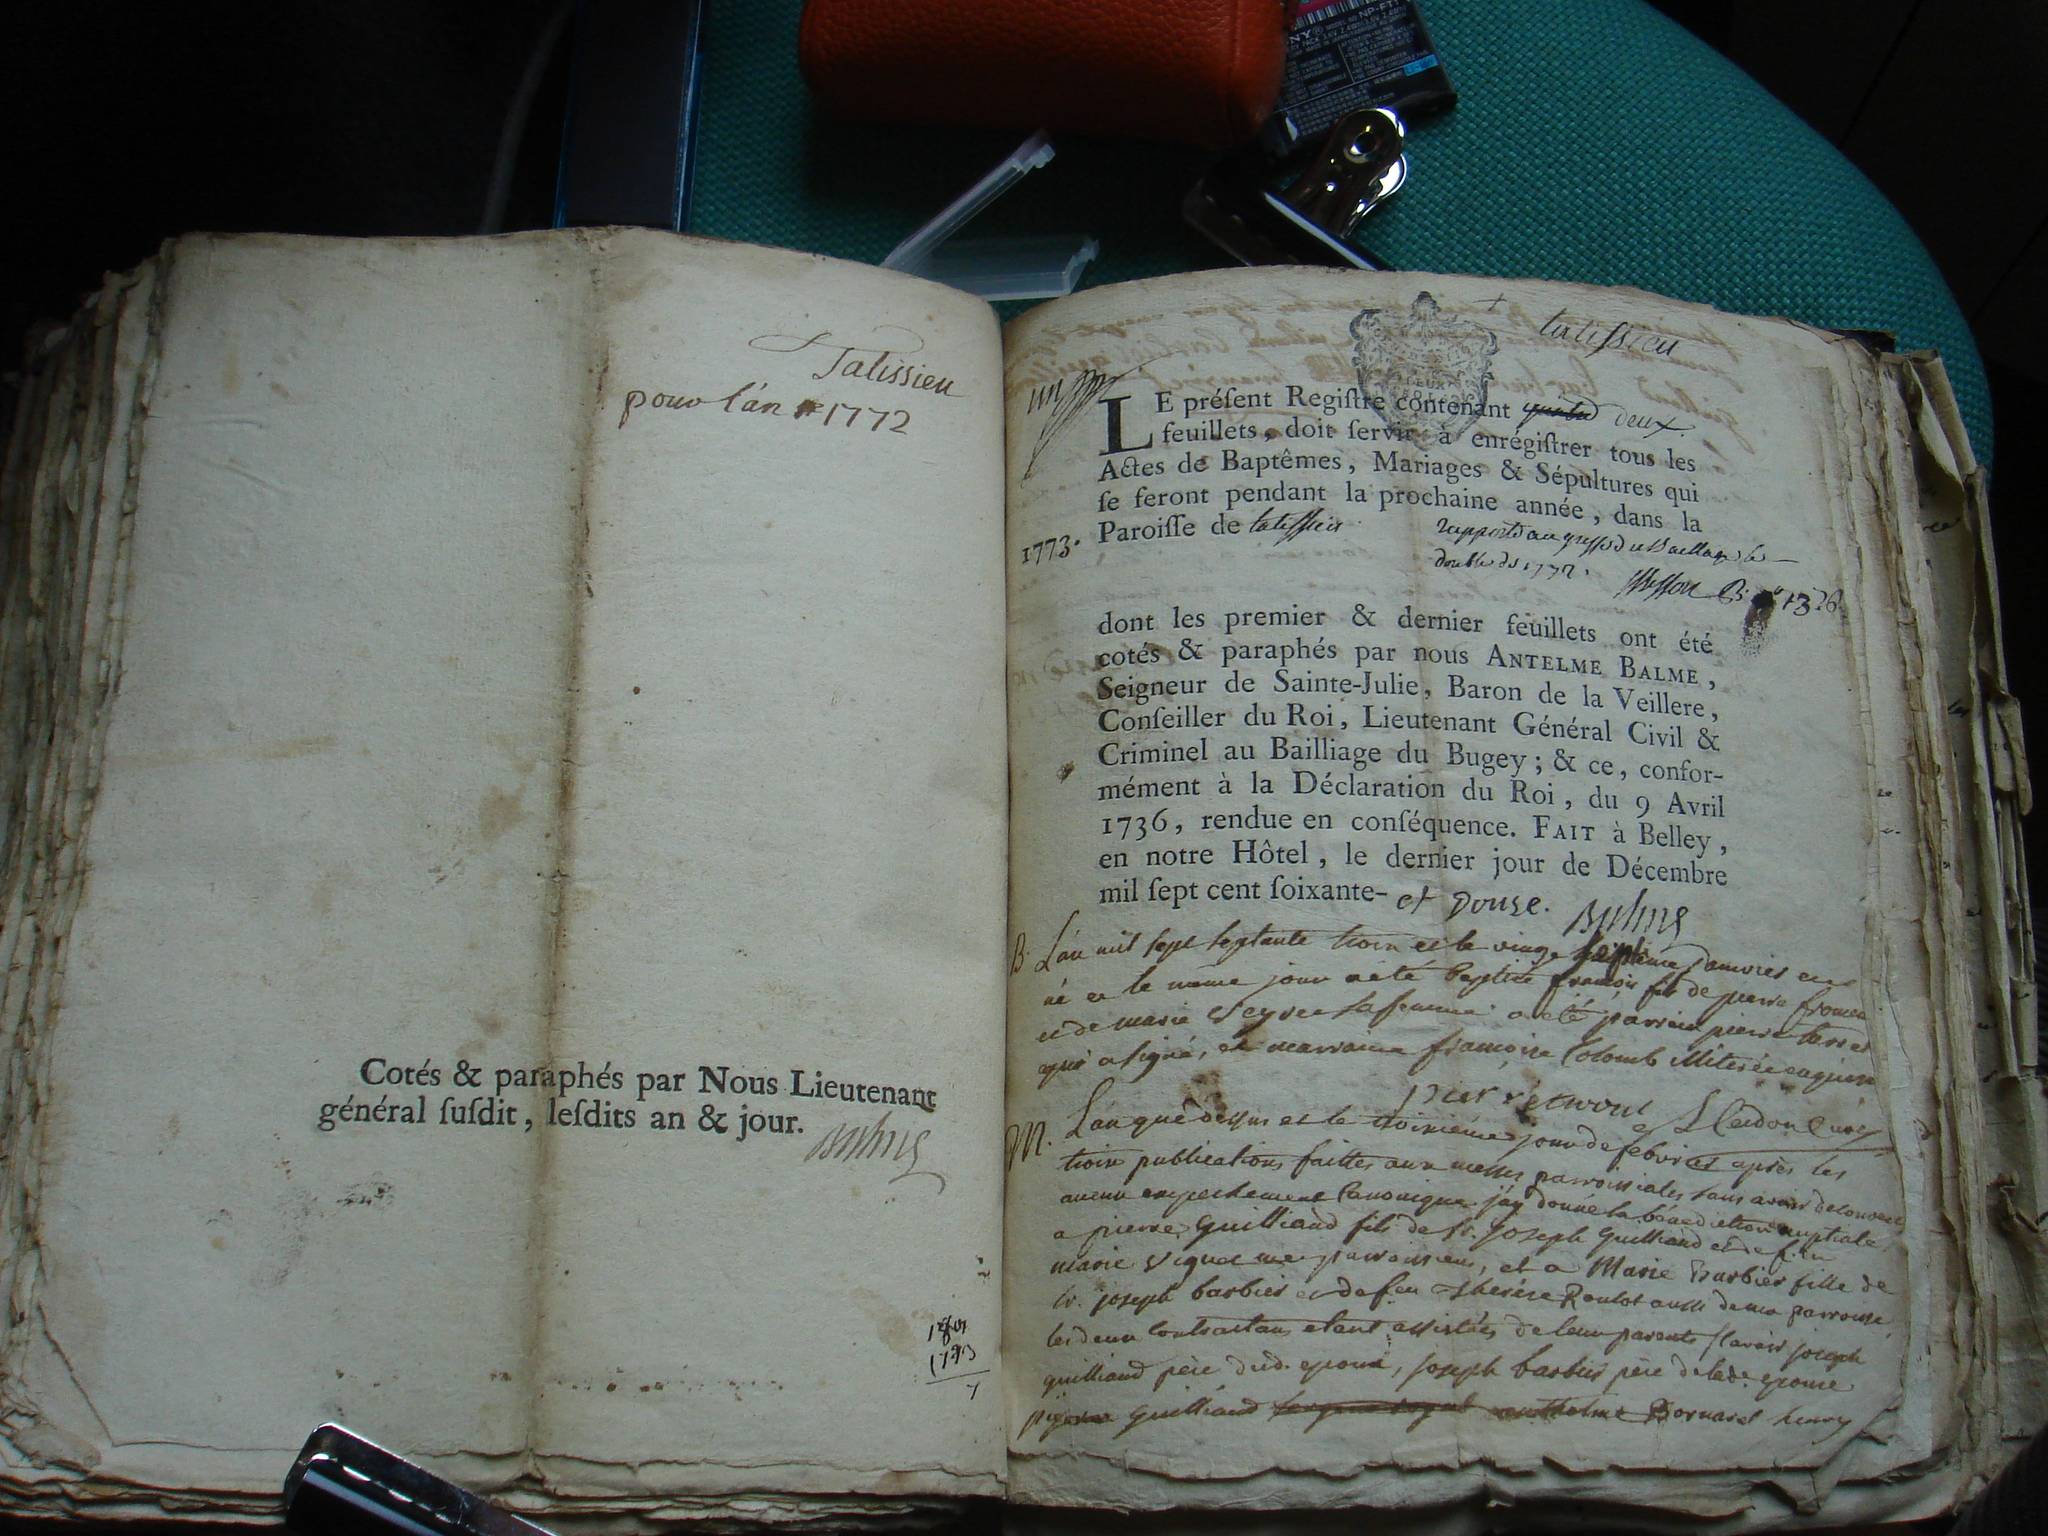 NP-FT1
Talissieu
pour l'an 1772
Cotés & paraphés par Nous Lieutenant
général ſuſdit, leſdits an & jour.
talissieu
un
LE préſent Regiſtre contenant deux
feuillets, doit ſervir à enrégiſtrer tous les
Actes de Baptêmes, Mariages & Sépultures qui
ſe feront pendant la prochaine année, dans la
1773. Paroiſſe de talissieu
double de 1772.
dont les premier & dernier feuillets ont été
cotés & paraphés par nous ANTELME BALME,
Seigneur de Sainte-Julie, Baron de la Veillere,
Conſeiller du Roi, Lieutenant Général Civil &
Criminel au Bailliage du Bugey; & ce, confor-
mément à la Déclaration du Roi, du 9 Avril
1736, rendue en conſéquence. FAIT à Belley,
en notre Hôtel, le dernier jour de Décembre
mil ſept cent ſoixante- et douze.
B. L'an mil sept septante trois et le vingt septieme janvier est
né et le meme jour a été baptisé françois fils de pierre
et de marie sa femme a été parrain pierre
qui a signé, et marraine françoise Colomb illiterée enquise
M. L'an que dessus et le troisiéme jour de febvrier après les
trois publications faittes aux messes parroissiales sans avoir decouvert
aucun empechement Canonique j'ay donné la bénediction nuptiale
a pierre Guilliand fils de Sr. Joseph Guilliand et de feu
marie mes parroissiens, et a Marie Barbier fille de
Sr. joseph barbier et de feu Therèse Roulot aussi de ma parroisse
les deux contractans etant assistés de leurs parents sçavoir joseph
guilliand père dud. epoux, joseph barbier père de lade. epouse
pierre Guilliand anthelme Bornarel henry